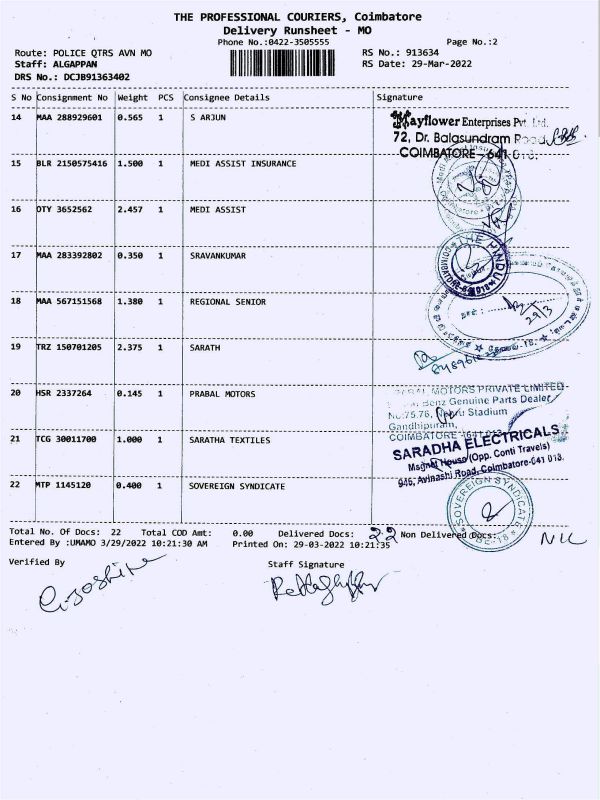 THE PROFESSIONAL COURIERS, Coimbatore
Delivery Runsheet - MO
Phone No.:0422-3505555
Page No.:2
Route: POLICE QTRS AVN MO
RS No.: 913634
Staff: ALGAPPAN
RS Date: 29-Mar-2022
DRS No.: DCJB91363402
S No Consignment No Weight PCS Consignee Details Signature
14 MAA 288929601 0.565 1 S ARJUN
Mayflower Enterprises Pvt. Ltd.
72, Dr. Balasundram Road,
COIMBATORE - 641 018.
15 BLR 2150575416 1.500 1 MEDI ASSIST INSURANCE
16 OTY 3652562 2.457 1 MEDI ASSIST
17 MAA 283392802 0.350 1 SRAVANKUMAR
THE HINDU
18 MAA 567151568 1.380 1 REGIONAL SENIOR
29/3
19 TRZ 150701205 2.375 1 SARATH
20 HSR 2337264 0.145 1 PRABAL MOTORS
MOTORS PRIVATE LIMITED
Benz Genuine Parts Dealer
No.75,76, Nehru Stadium
Gandhipuram,
COIMBATORE - 641 013
21 TCG 30011700 1.000 1 SARATHA TEXTILES
SARADHA ELECTRICALS
Magnet House (Opp. Conti Travels)
946, Avinashi Road, Coimbatore-641 018.
22 MTP 1145120 0.400 1 SOVEREIGN SYNDICATE
SOVEREIGN SYNDICATE
CBE-18
Total No. Of Docs: 22 Total COD Amt: 0.00 Delivered Docs: 22 Non Delivered Docs: NIL
Entered By :UMAMO 3/29/2022 10:21:30 AM Printed On: 29-03-2022 10:21:35
Verified By
Staff Signature